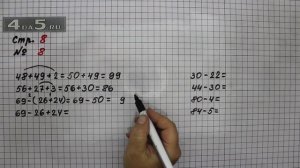 4DA5.RU
Стр. 8
№ 8
48+49+2=50+49=99
56+27+3=56+30=86
69-(26+24)=69-50= 9
69-26+24=
30-22=
44-30=
80-4=
84-5=